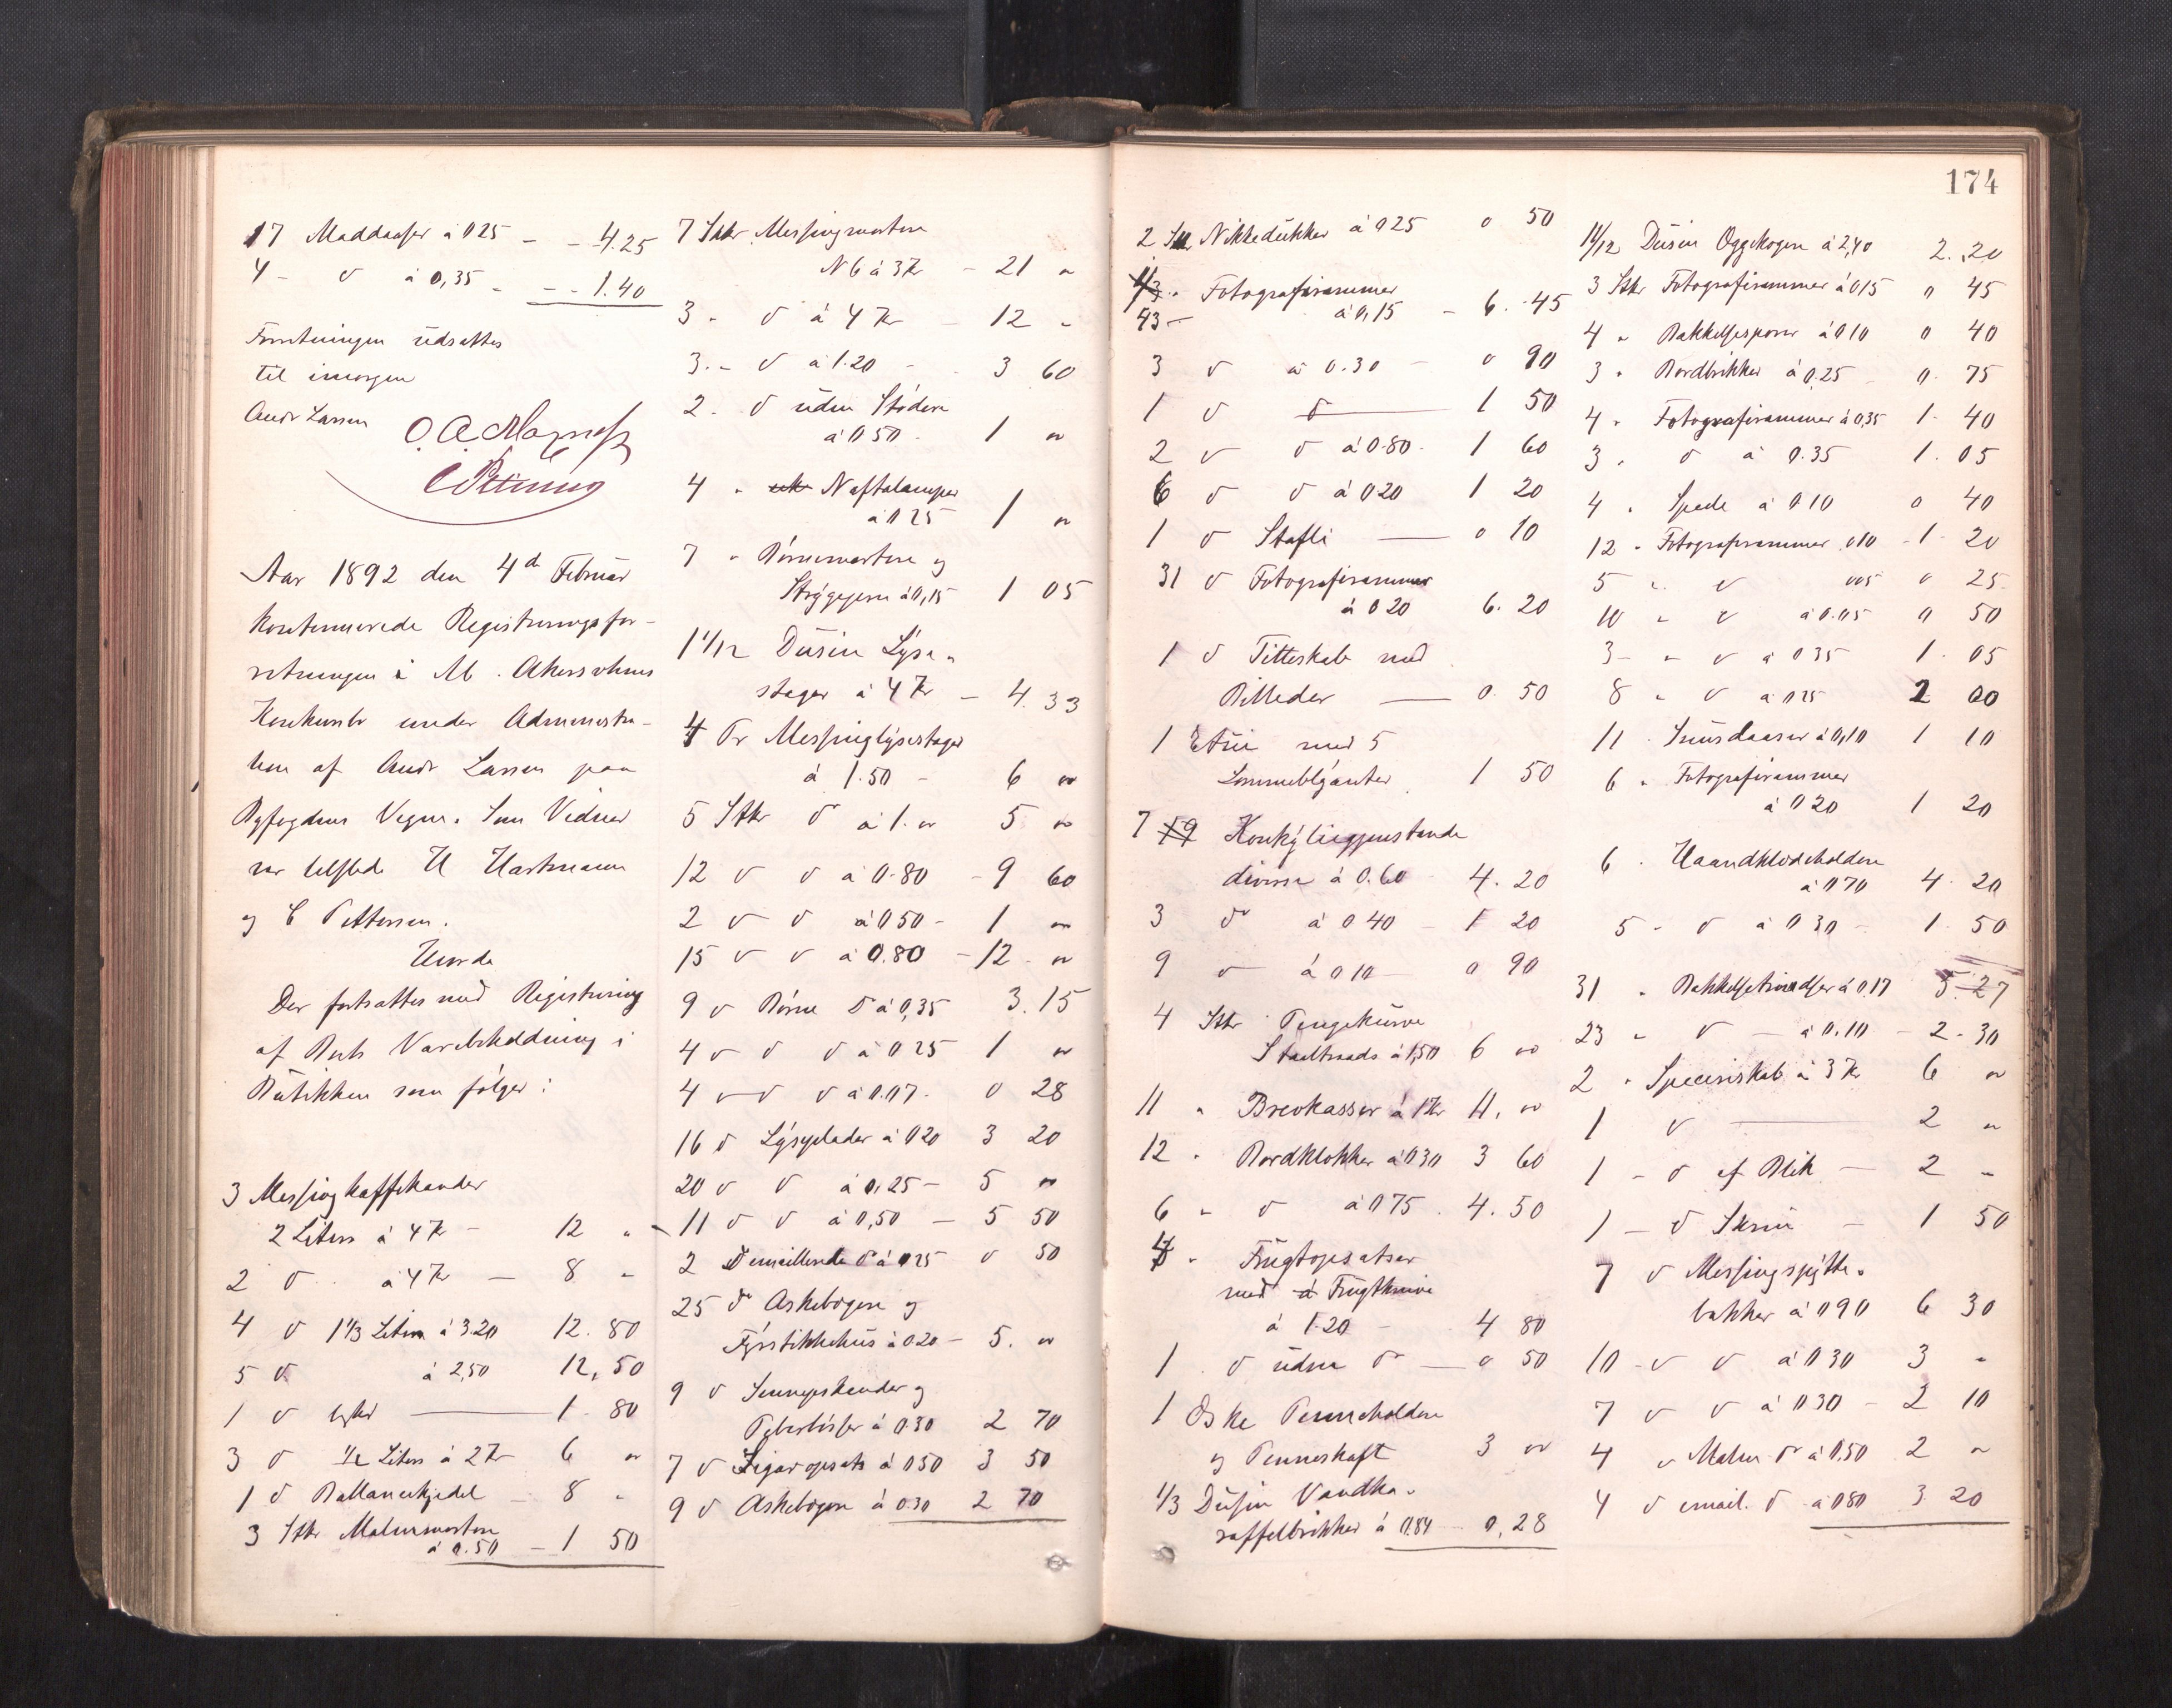 17 Maddaaser à 0 25 - - 4.25
4 - d à 0,35 - - - 1.40
Forretningen udsattes
til imorgen
Andr Larsen
Aar 1892 den 4d Februar
kontinuerede Registreringsfor-
retningen i M. Akersohns
Konkursbo under Administra-
tion af Andr Larsen paa
Byfogdens Vegne. Som Vidner
var tilstede H Hartmann
og C Pettersen.
Hvorda
Der fortsattes med Registrering
af Boets Varebeholdning i
Butikken som følger:
3 Messingkaffekander
2 Liters à 4 Kr - 12 "
2 d à 4 Kr - 8 "
4 d 1 1/3 Liters à 3.20 12.80
5 d à 2,50 12,50
1 d 1.80
3 d 1/2 Liters à 2 Kr 6 "
1 d Ballancekjedel - 8 "
3 Stkr Malmmortere
à 0.50 - 1 50
7 Stkr Messingmortere
N 6 à 3 Kr - 21 "
3 " d à 4 Kr - 12 "
3 " d à 1.20 - - 3 60
2 " d uden Stødere
à 0 50 - 1 "
4 " Naftalamper
à 0 25 1 "
7 " Børnemortere og
Strygejern à 0,15 1 05
1 1/12 Dusin Lyse-
stager à 4 Kr - 4.33
4 Pr Messinglysestager
à 1.50 - 6 "
5 Stkr d à 1. " 5 "
12 d d à 0.80 - 9 60
2 d d à 0 50 - 1 "
15 d d à 0.80 - 12 - "
9 d Børne d à 0,35 3.15
4 d d d à 0 25 1 "
4 d d d à 0.07 - 0 28
16 d Lyseplader à 0 20 3 20
20 d d à 0,25 - 5 "
11 d d à 0,50 - 5 50
2 d emaillerede d à 0 25 0 50
25 d Askebægere og
Fyrstikkehus à 0.20 - 5. "
9 d Sennepskander og
Peberbøsser à 0.30 2 70
7 d Sigaropsats à 0 50 3 50
9 d Askebægere à 0.30 2 70
174
2 Stkr Nikkedukker à 0 25 0 50
43 - Fotografirammer
à 0,15 - 6.45
3 d à 0.30 - 0 90
1 d d 1 50
2 d d à 0.80 - 1 60
6 d d à 0 20 1 20
1 d Stafli 0 10
31 d Fotografirammer
à 0 20 6.20
1 d Titteskab med
Billeder 0.50
1 Etui med 5
Lommeblyanter 1 50
7 Konkyliegjenstande
diverse à 0.60 4.20
3 d à 0 40 - 1 20
9 d à 0 10 - 0 90
4 Stkr Pengekurve
Staaltraads à 1,50 6 "
11 " Brevkasser à 1 Kr 11. "
12 " Bordklokker à 0 30 3 60
6 " d à 0 75. 4.50
4 " Frugtopsatser
med Frugtknive
à 1.20 - 4 80
1 d uden d - 0 50
1 Æske Penneholdere
og Penneskaft 3 "
1/3 Dusin Vandka-
raffelbrikker à 0.84 - 0,28
11/12 Dusin Æggekogere à 2,40 2.20
3 Stkr Fotografirammer à 0 15 0 45
4 " Bakkelsesporer à 0 10 0 40
3 " Bordbrikker à 0.25 0.75
4 " Fotografirammer à 0,35 1.40
3 " d à 0.35 1.05
4 " Spade à 0 10 0 40
12 " Fotografirammer 0 10 - 1 - 20
5 " d 0 05 0 25
10 " d à 0.05 0 50
3 - " d à 0 35 1.05
8 " d à 0 25 2 00
11 " Snusdaaser à 0,10 1 10
6 " Fotografirammer
à 0 20 1 20
6 " Haandklædeholdere
à 0 70 4.20
5 " d à 0 30 - 1.50
31 " à 0.17 5.27
23 " d - à 0.10 - 2.30
2 " Speceriskab à 3 Kr 6 "
1 d 2 "
1 - d af Blik - 2 "
1 - d Skrin - 1 50
7 d Messingspytte-
bakker à 0 90 6 30
10 - d d à 0 30 3 "
7 d d à 0 30 - 2 10
4 d Malm d à 0,50 2 "
4 d email. d à 0 80 3.20